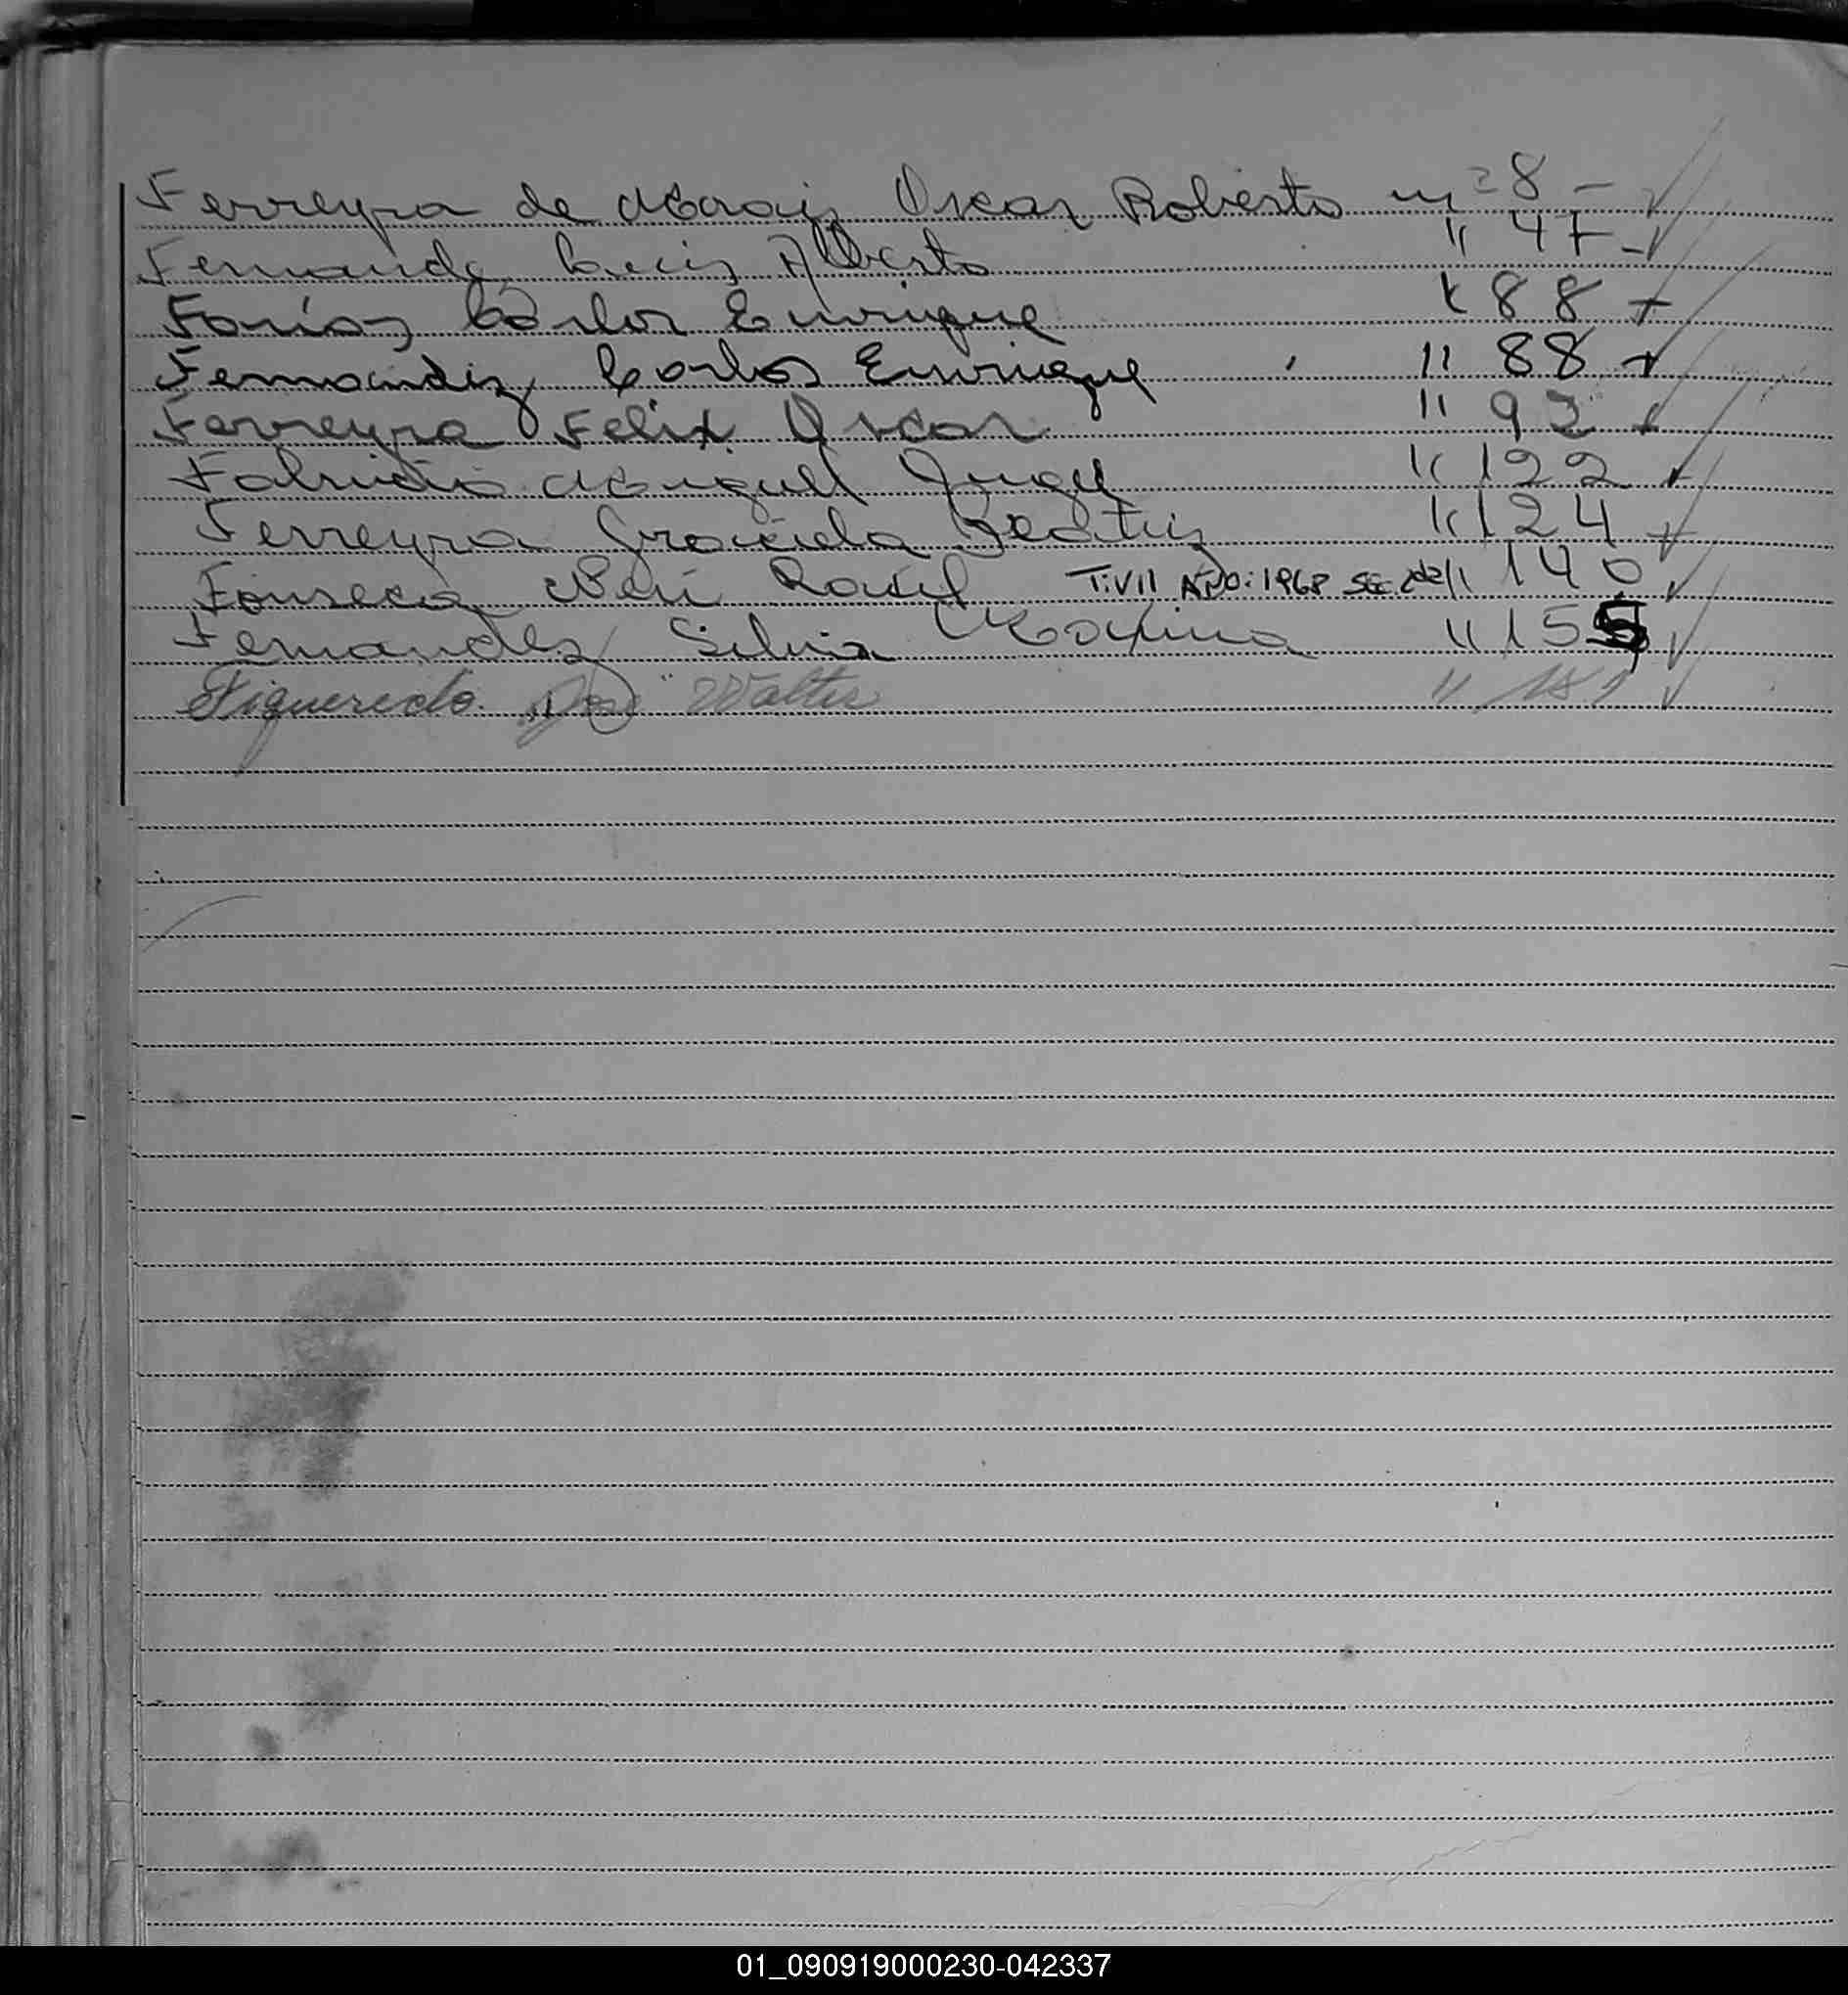 Ferreyra de Morais Oscar Roberto nº 8 -
Fernande Luis Alberto " 47 -
Farías Carlos Enrique " 88 +
Fernandez Carlos Enrique " 88 +
Ferreyra Felix Oscar " 92 +
Fabricio Miguel Angel " 122 +
Ferreyra Graciela Beatriz " 124 +
Fonseca Neri Raúl T:VII AÑO:1968 " 140
Fernandez Silvia Maxima " 155
Figueredo José Walter " 181
01_090919000230-042337